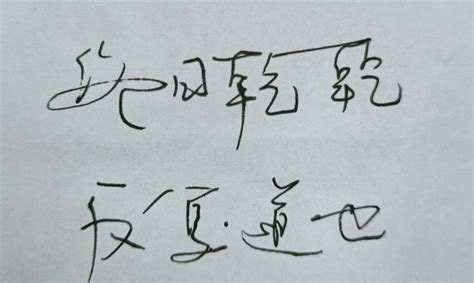 终日乾乾
反复道也